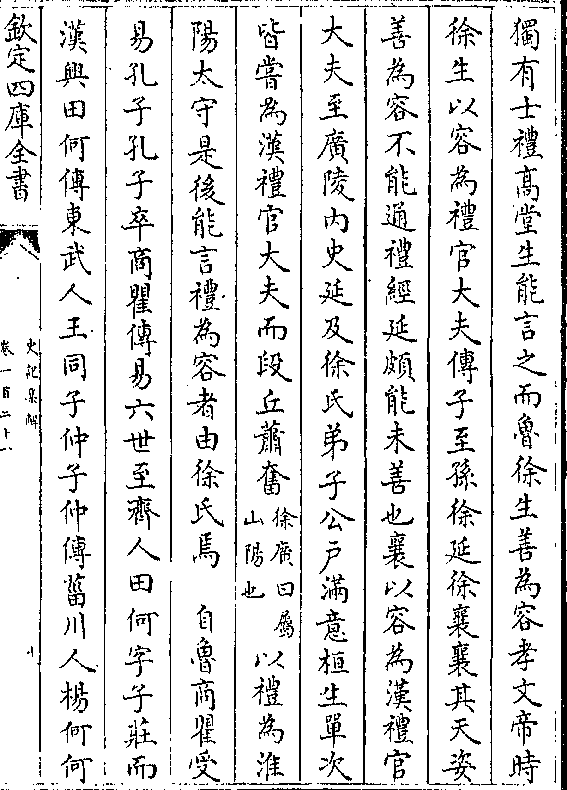 獨有士禮髙堂生能言之而魯徐生善為容孝文帝時
徐生以容為禮官大夫傳子至孫徐延徐襄襄其天姿
善為容不能通禮經延頗能未善也襄以容為漢禮官
大夫至廣陵内史延及徐氏弟子公戶滿意桓生單次
皆嘗為漢禮官大夫而叚丘蕭奮徐廣曰屬山陽也以禮為淮
陽太守是後能言禮為容者由徐氏焉　自魯商瞿受
易孔子孔子卒商瞿傳易六世至齊人田何字子莊而
漢興田何傳東武人王同子仲子仲傳菑川人楊何何
欽定四庫全書
史記集解
卷一百二十一